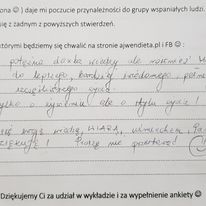 ona 😊 ) daje mi poczucie przynależności do grupy wspaniałych ludzi.
się z żadnym z powyższych stwierdzeń.
którymi będziemy się chwalić na stronie ajwendieta.pl i FB 😊 :
potężna dawka wiedzy ale również
do lepszego, bardziej świadomego,
szczęśliwszego życia.
tylko o żywieniu ale o stylu życia!
wiedzę, WIARĄ, uśmiechem,
Dziękuję! Proszę nie przestawać 😊
Dziękujemy Ci za udział w wykładzie i za wypełnienie ankiety 😊